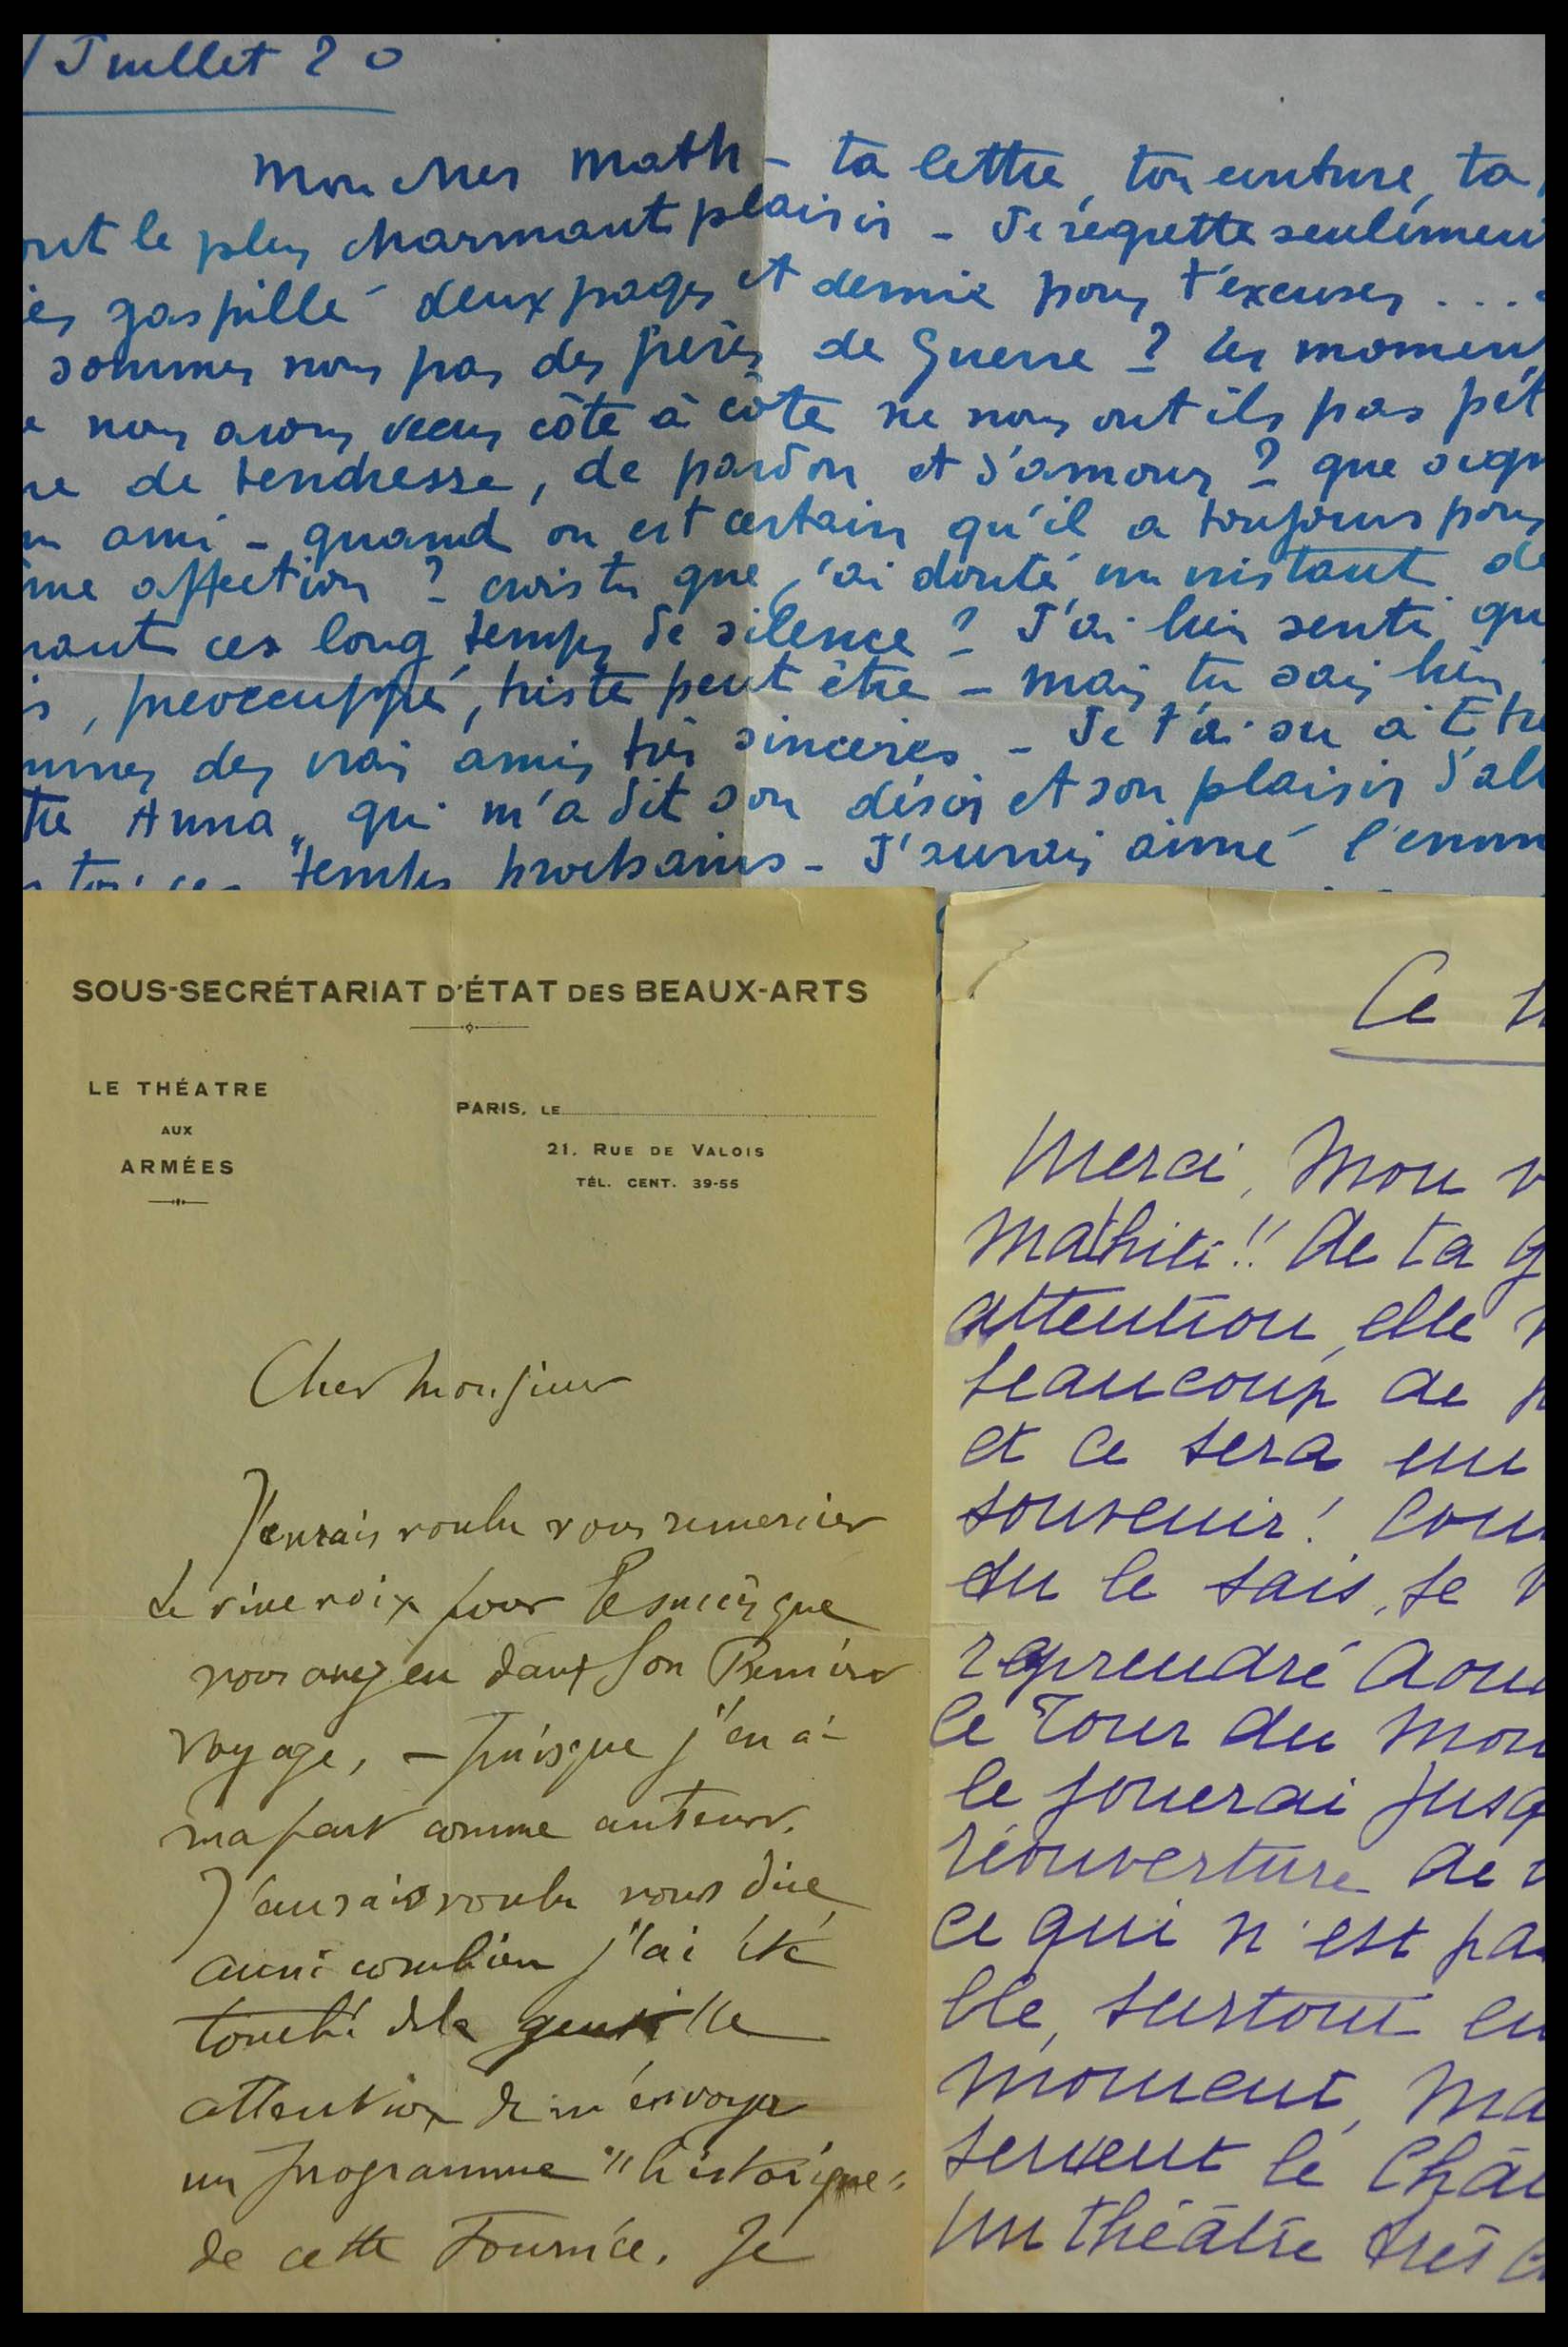 Juillet 20
Mon cher Math - ta lettre, ton ceinture, ta
ont le plus charmant plaisir - Je regrette seulement
gaspillé deux pages et demie pour t'excuser ...
sommes nous pas des frères de Guerre ? Les moment
nous avons vecus côte à côte ne nous ont ils pas pét
de tendresse, de pardon et d'amour ? que sign
ami - quand on est certain qu'il a toujours pour
me affection ? crois tu que j'ai douté un instant de
ces long temps de silence ? J'ai bien senti qu
s, préoccuppé, triste peut être - mais tu sais bien
mmes des vrais amis très sincères - Je t'ai su à Etre
Anna" qui m'a dit son désir et son plaisir d'all
toi ces temps prochains - J'aurais aimé l'emm
SOUS-SECRÉTARIAT D'ÉTAT DES BEAUX-ARTS
LE THÉATRE
AUX
ARMÉES
PARIS, LE
21, RUE DE VALOIS
TÉL. CENT. 39-55
Cher Monsieur
J'aurais voulu vous remercier
de vive voix pour le succès que
vous avez eu dans son Premier
voyage, - puisque j'en ai
ma part comme auteur.
J'aurais voulu vous dire
aussi combien j'ai été
touché de la gentille
attention de m'envoyer
un programme "historique"
de cette Tournée. Je
Ce
Merci, Mon v
Mathili !! de ta g
attention, elle
beaucoup de p
et ce sera un
souvenir ! Com
tu le sais, je v
reprendré Aou
le Tour du Mon
le jouerai jusq
réouverture de
ce qui n'est pa
ble, surtout en
moment, Ma
servent le Chât
un théâtre très